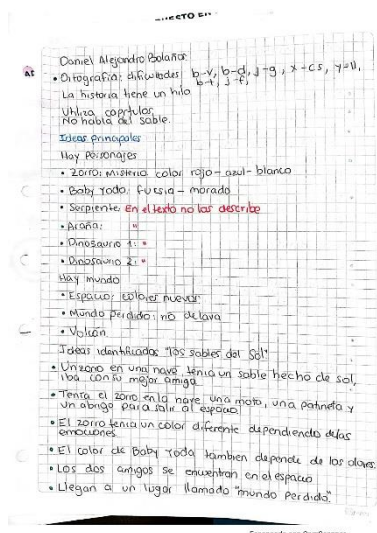 Daniel Alejandro Bolaños
• Ortografia: dificultades b-v, b-d, j-g, x-cs, y-ll,
b-t, j-f,
La historia tiene un hilo
Utiliza capitulos
No habla del sable.
Ideas Principales
Hay Personajes
• Zorro: Misterio color rojo-azul-blanco
• Baby Yoda: fucsia-morado
• Serpiente: En el texto no las describe
• Araña: "
• Dinosaurio 1: "
• Dinosaurio 2: "
Hay mundo
• Espacio: colores nuevos
• Mundo perdido: no de lava
• Volcán
Ideas identificadas "los sables del Sol"
• Un zorro en una nave, tenia un sable hecho de sol,
iba con su mejor amiga
• Tenia el zorro en la nave una moto, una patineta y
un abrigo para salir al espacio
• El zorro tenia un color diferente dependiendo de las
emociones
• El color de Baby Yoda tambien depende de los olores.
• Los dos amigos se encuentran en el espacio
• Llegan a un lugar llamado "mundo Perdido".